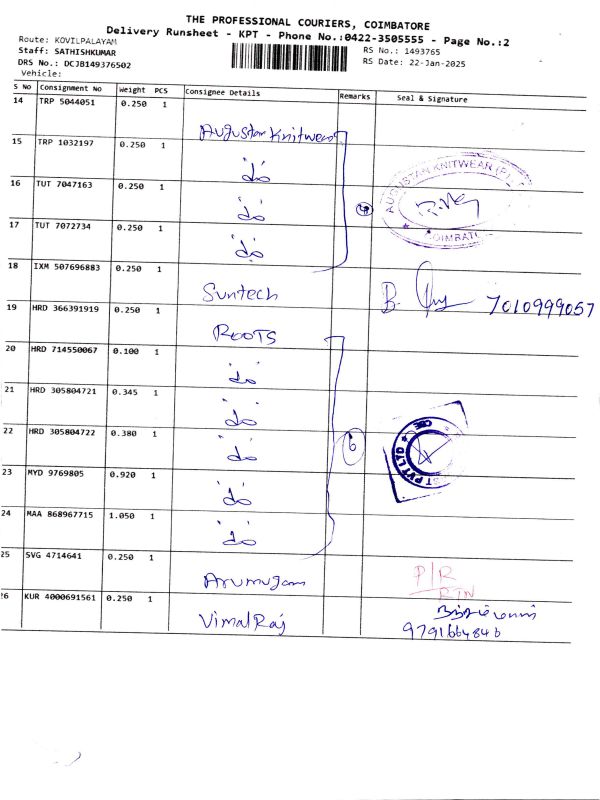 THE PROFESSIONAL COURIERS, COIMBATORE
Delivery Runsheet - KPT - Phone No.:0422-3505555 - Page No.:2
Route: KOVILPALAYAM
RS No.: 1493765
Staff: SATHISHKUMAR
RS Date: 22-Jan-2025
DRS No.: DCJB149376502
Vehicle:
S No Consignment No Weight PCS Consignee Details Remarks Seal & Signature
14 TRP 5044051 0.250 1 Augustan Knitwear
15 TRP 1032197 0.250 1 do
16 TUT 7047163 0.250 1 do
17 TUT 7072734 0.250 1 do
AUGUSTAN KNITWEAR (P)
COIMBAT
18 IXM 507696883 0.250 1 Suntech B. 7010999057
19 HRD 366391919 0.250 1 ROOTS
20 HRD 714550067 0.100 1 do
21 HRD 305804721 0.345 1 do
22 HRD 305804722 0.380 1 do 6
CBE
ST PVT LTD
23 MYD 9769805 0.920 1 do
24 MAA 868967715 1.050 1 do
25 SVG 4714641 0.250 1 Arumugam P/R
RTN
26 KUR 4000691561 0.250 1 VimalRaj
9791664846